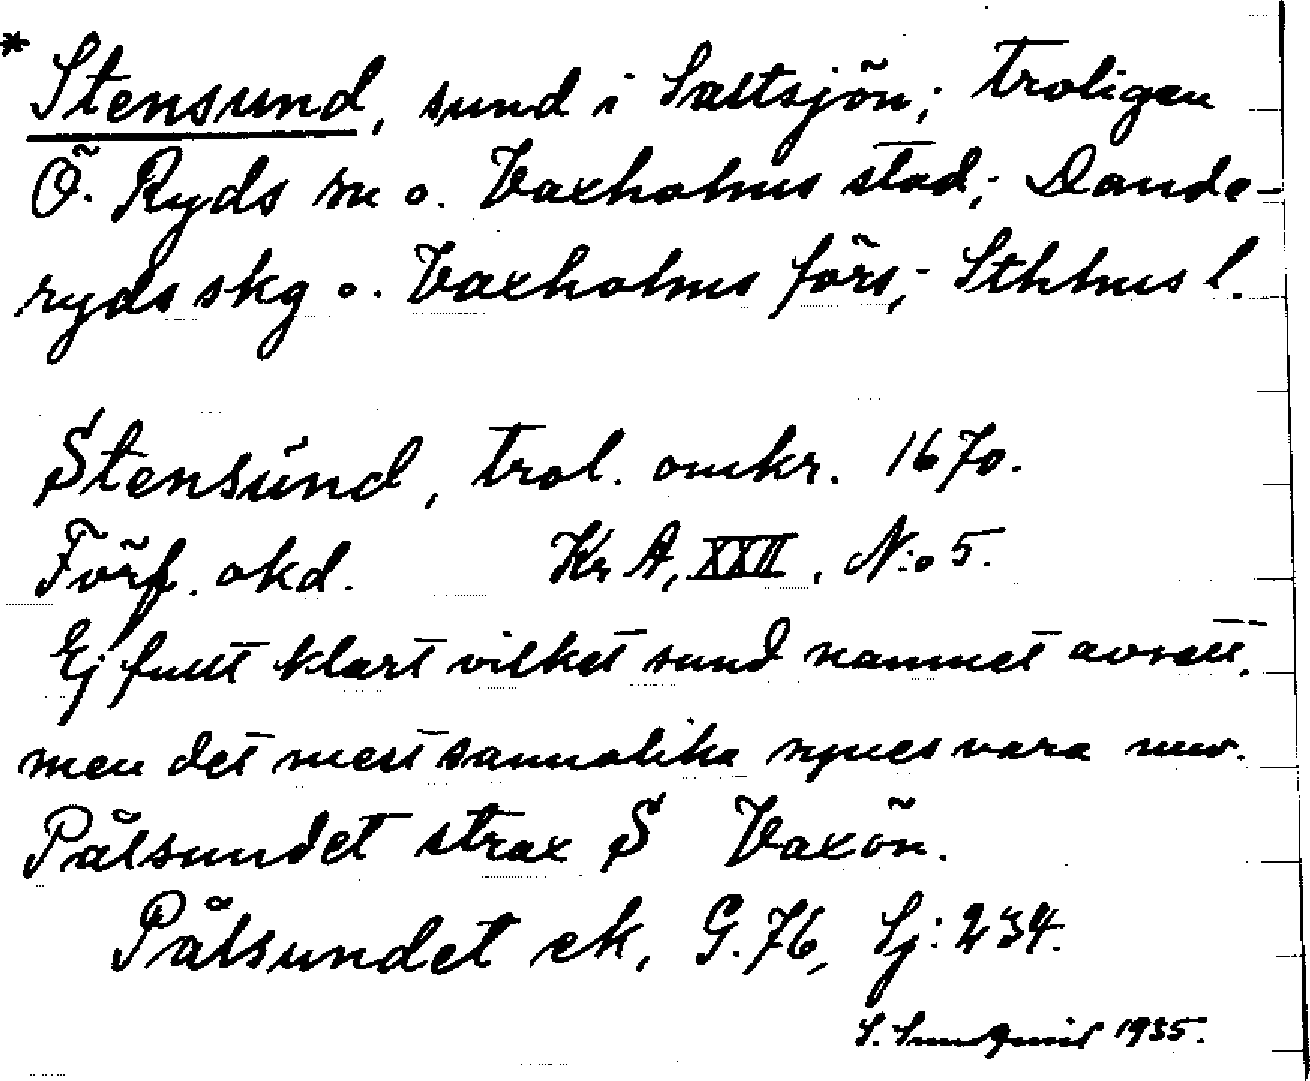 * Stensund, sund i Saltsjön; troligen
Ö. Ryds sn o. Vaxholms stad; Dande-
ryds skg o. Vaxholms förs; Sthlms l.
Stensund, trol. omkr. 1670.
Förf. okd. Kr A, XXII, N:o 5.
Ej fullt klart vilket sund namnet avsett,
men det mest sannolika synes vara nuv.
Pålsundet strax S Vaxön.
Pålsundet ek, G.76, Sj: 234.
S. Sundquist 1935.